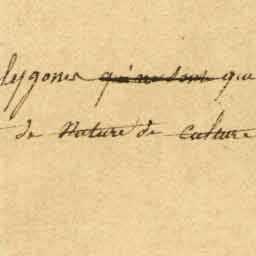 lygones qui ne sont que
de Nature de Culture